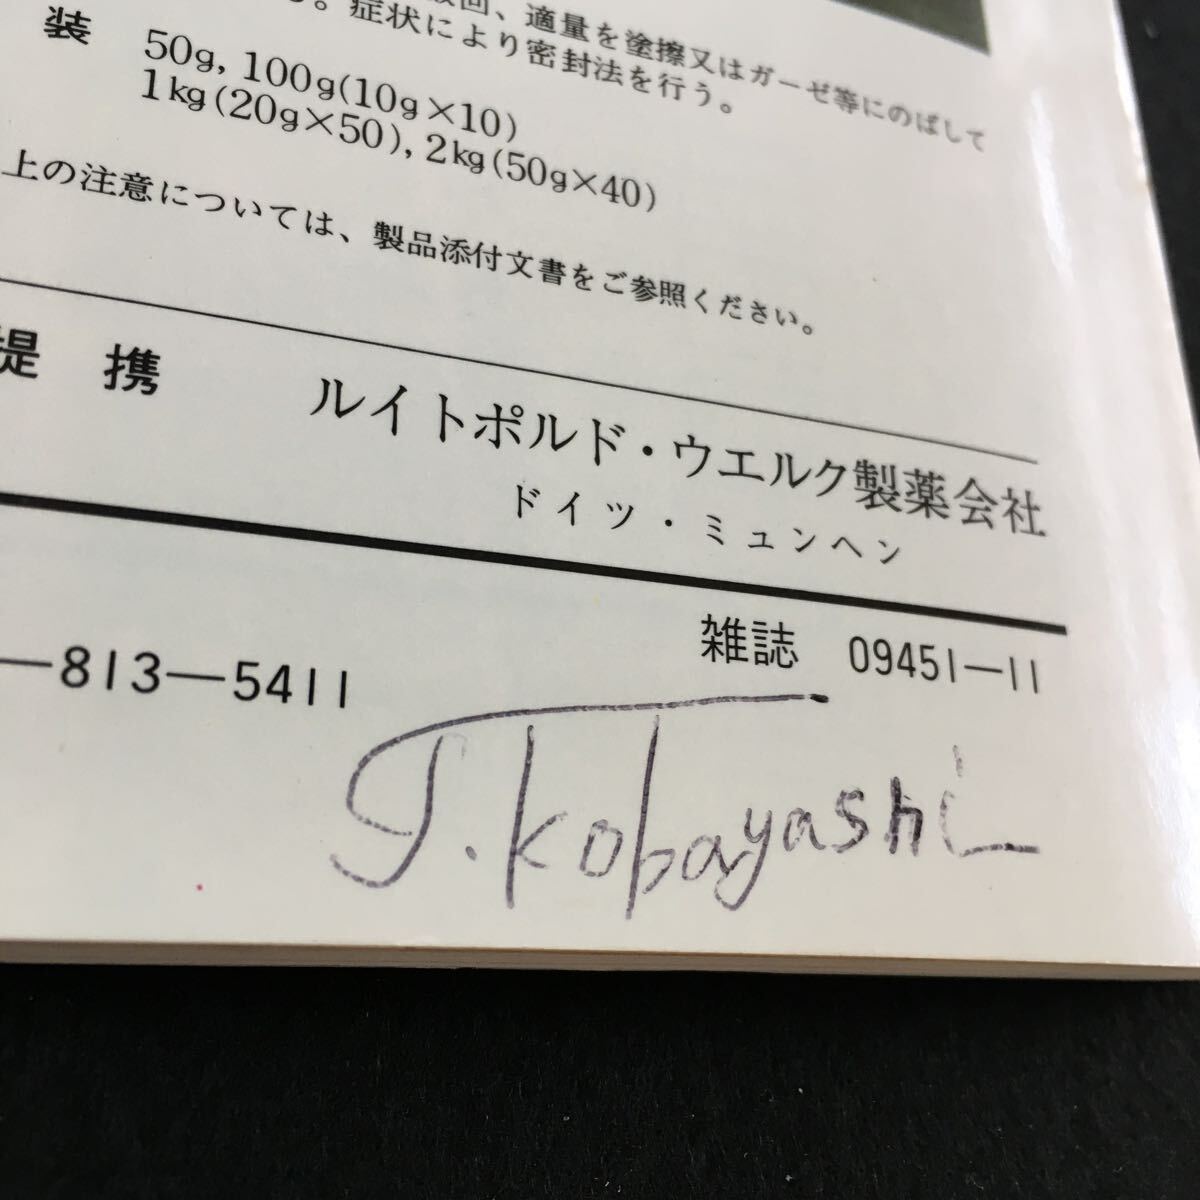 数回、適量を塗擦又はガーゼ等にのばして
る。症状により密封法を行う。
装 50g, 100g(10g×10)
1kg(20g×50), 2kg(50g×40)
上の注意については、製品添付文書をご参照ください。
提 携 ルイトポルド・ウエルク製薬会社
ドイツ・ミュンヘン
—813—5411 雑誌 09451—11
T. Kobayashi